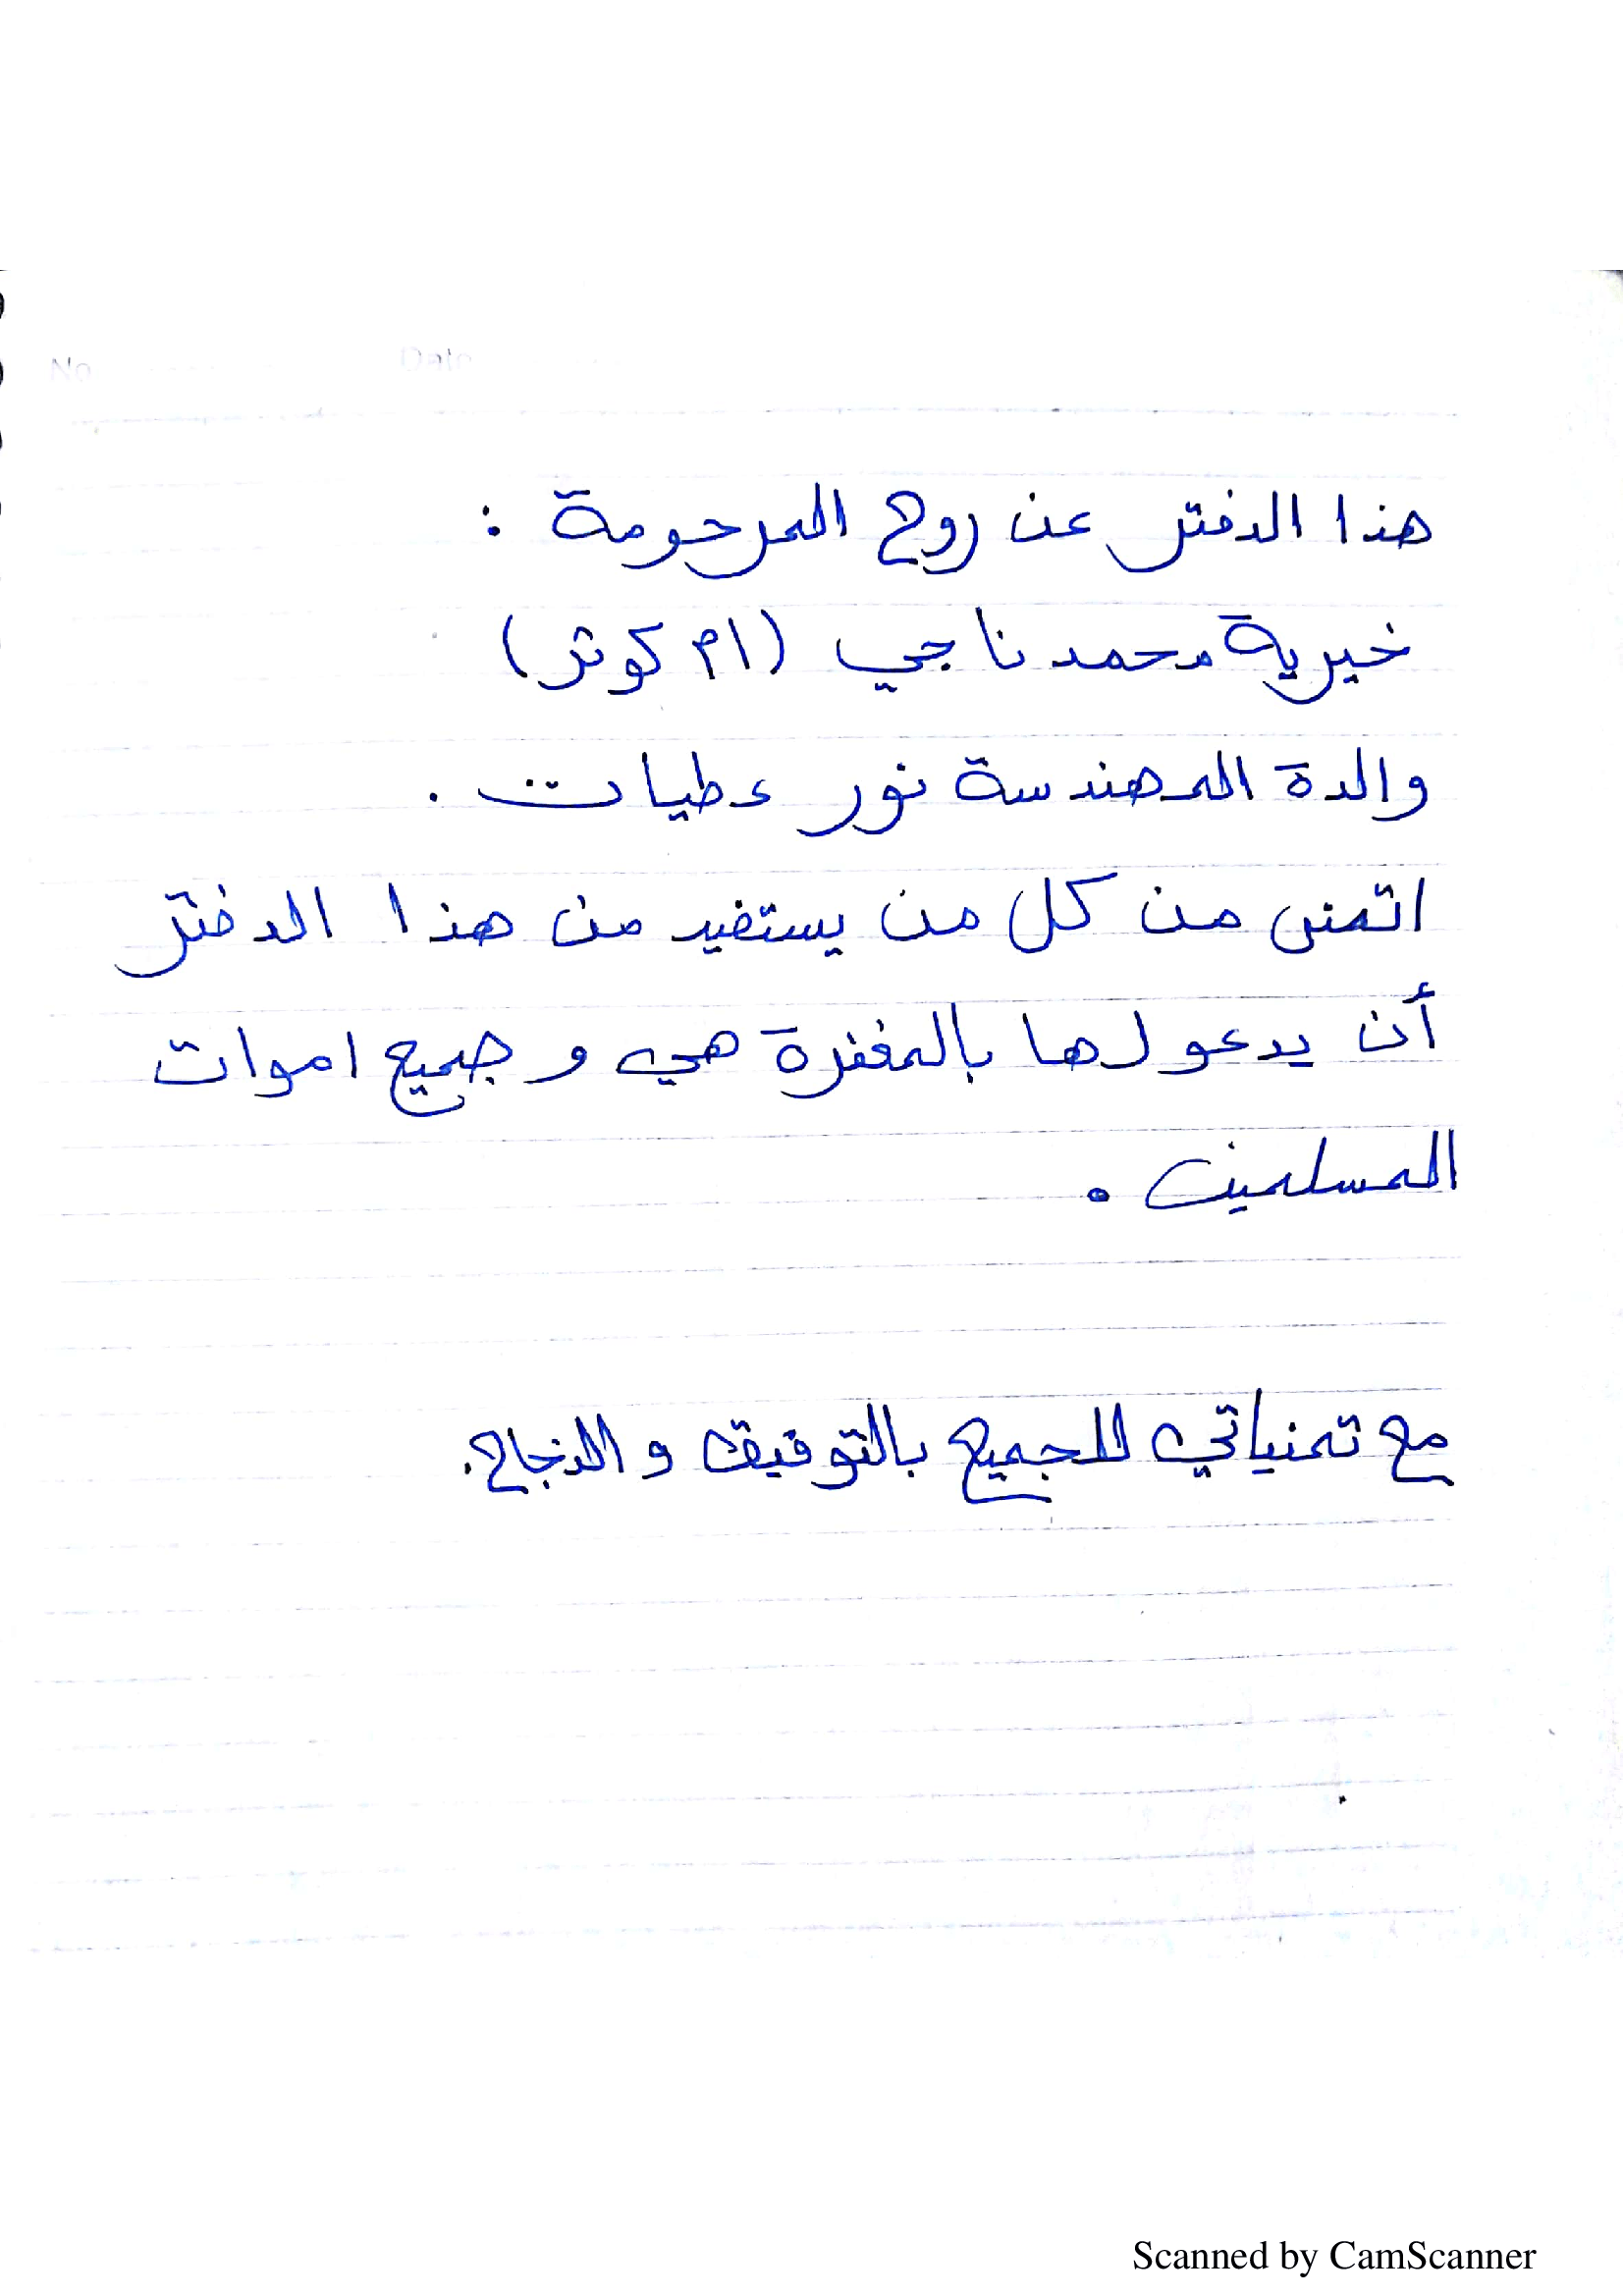 No Date
هذا الدفتر عن روح المرحومة :
خيرية محمد ناجي (ام كوثر)
والدة المهندسة نور عطيات .
اتمنى من كل من يستفيد من هذا الدفتر
أن يدعو لها بالمغفرة هي و جميع اموات
المسلمين .
مع تمنياتي للجميع بالتوفيق و النجاح.
Scanned by CamScanner